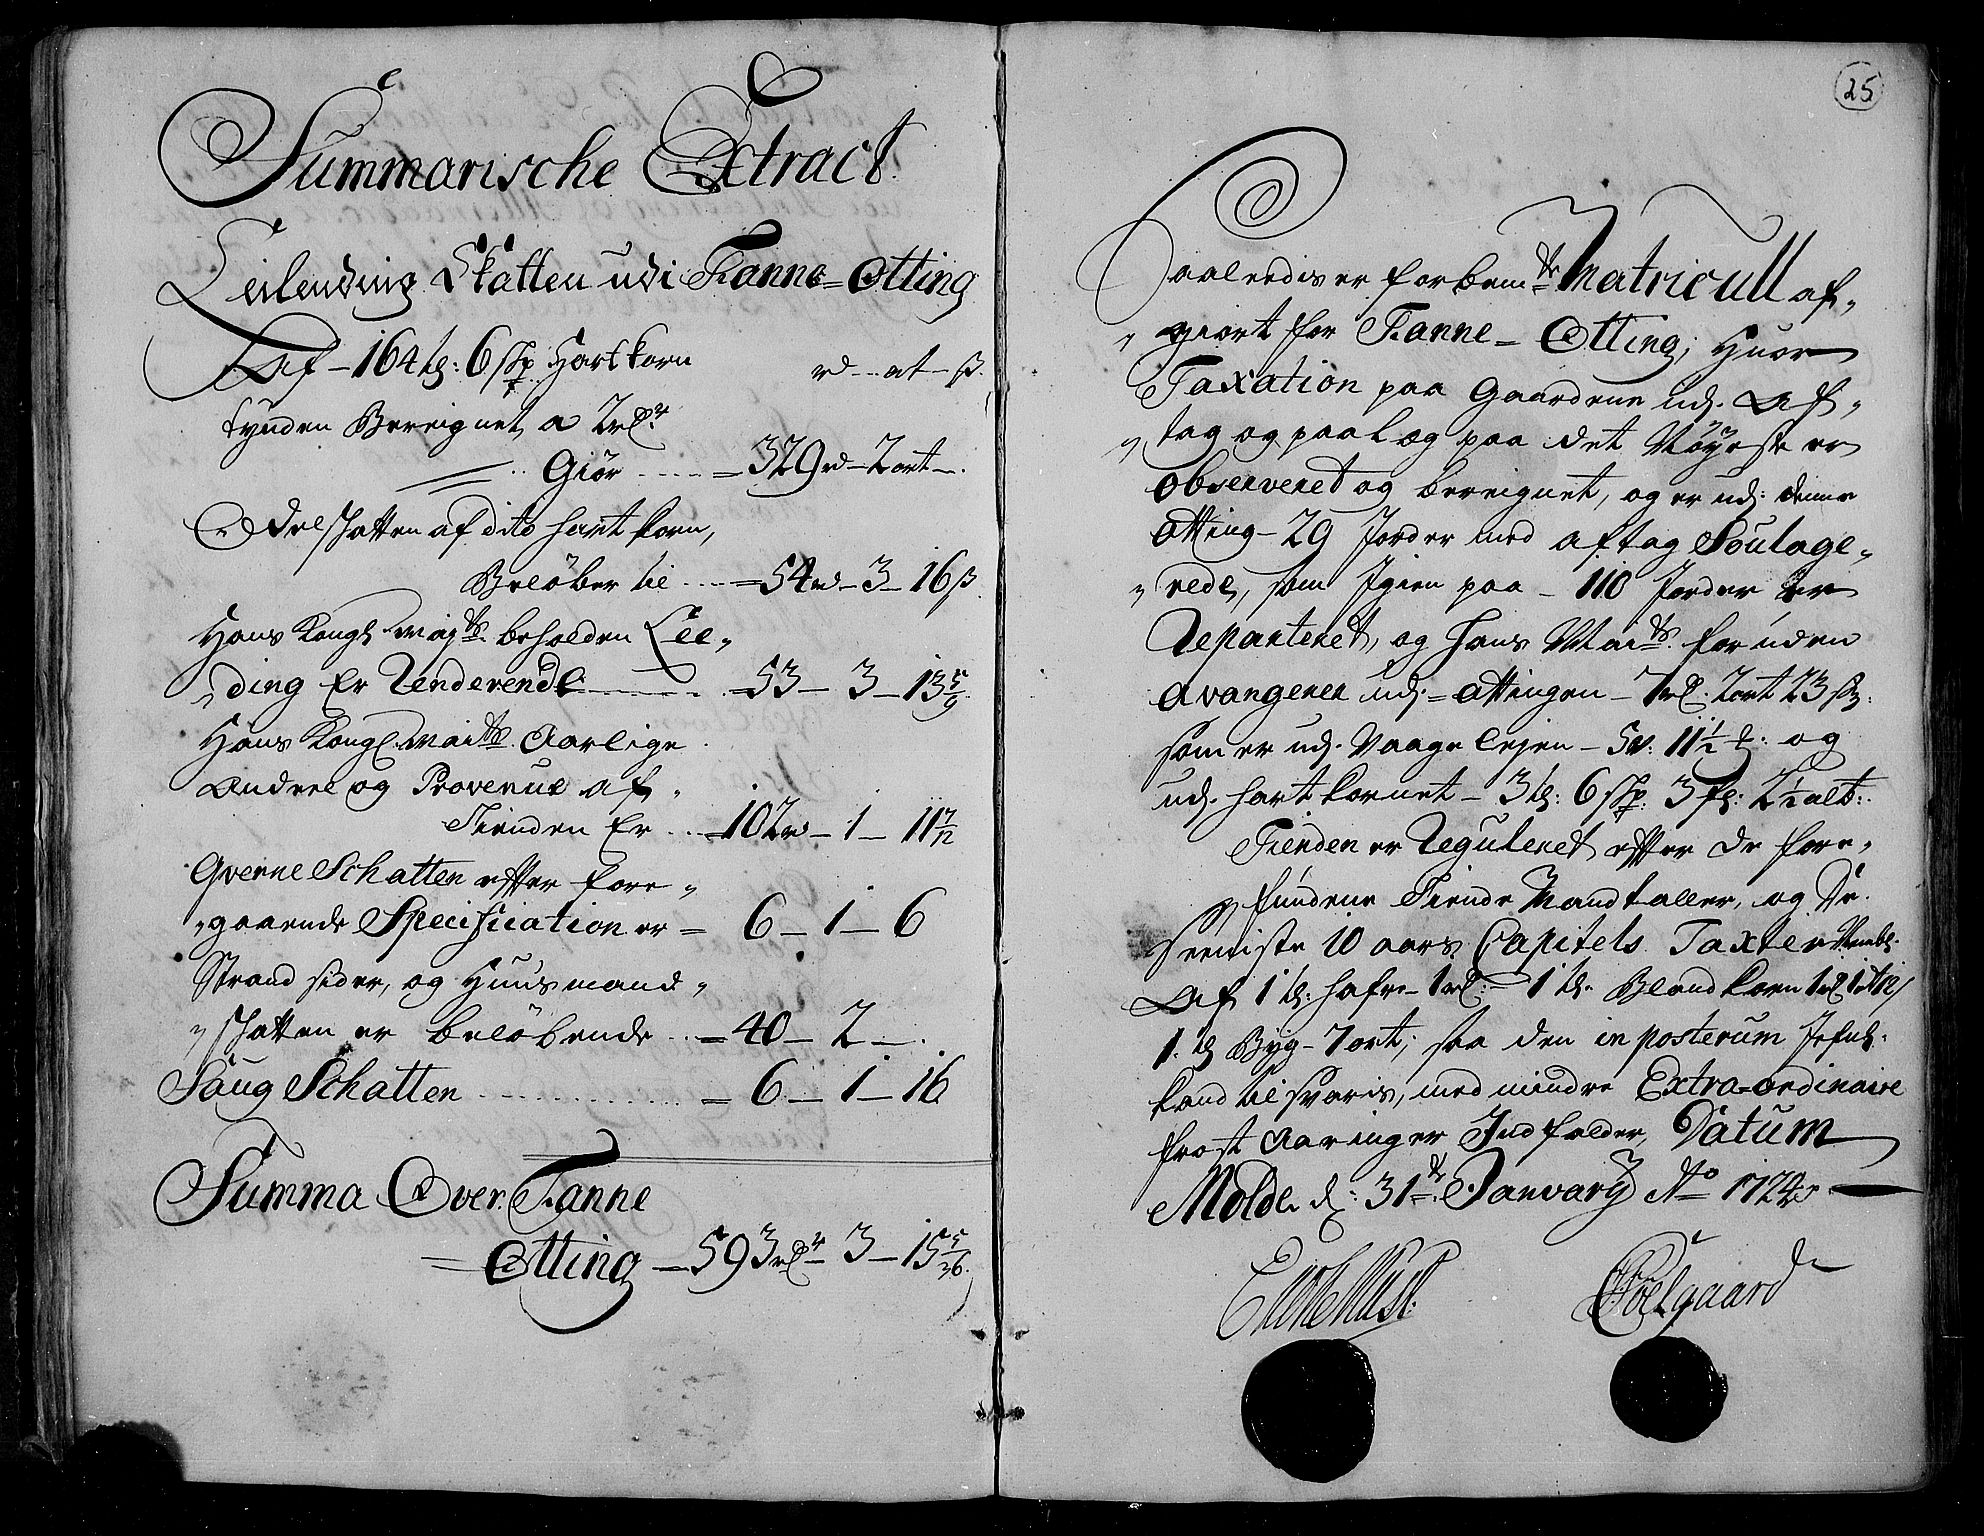 Summarische Extract
Leilending Skatten udi Tanne=Otting
Af - 164 td: 6 skp Hartkorn rd - ort - ß.
tynden Bereignet a 2 rdr
Giör - 329 rd - 2 ort -
Odelskatten af dito hartkorn,
Beløber til - 54 rd - 3 - 16 ß
Hans Kongl Mayts beholden Lee-
ding Er Renderende - 53 - 3 - 13 5/9
Hans Kongl. Maits Aarlige
Andeel og Provenue af
Tienden Er - 102 rd - 1 - 11 7/12
Qverne Schatten effter fore-
gaaende Specification er = 6 - 1 - 6
Strand sider, og Huusmand-
skatten er beløbende - 40 - 2 -
Saug Schatten - 6 - 1 - 16
Summa Over Tanne
Otting - 593 rdr - 3 - 15 5/36
25
Saaledis er forbemte Matricull af-
giort for Tanne-Otting, Huor
Taxation paa Gaardene udj Af-
tag og paalæg paa det Nøyeste er
observeret og bereignet, og er udj denne
otting - 29 Jorder med aftag Soulage-
rede, som Igien paa - 110 Jorder er
Reparteret, og Hans Maits for uden
avangerer udj - ottingen - 7 rd 2 ort 23 ß
som er udj Vaage lejen - 5 v: 11 1/2 og
udj hartkornet - 3 td: 6 skp: 3 fj: 2 1/2 alb:
Tienden er Reguleret effter de fore-
fundene Tiende Mandtaller, og De
seeniste 10 aars Capitels Taxter
Af 1 td: hafre - 1 rd - 1 td. Blandkorn 1 rd 1 ort 12 ß
1. td Byg - 7 ort; saa den in posterum
kand tilsvaris, med mindre Extra-ordinaire
frost Aaringer Indfalder, Datum
Molde d: 31te January Ao 1724
Foelgaard